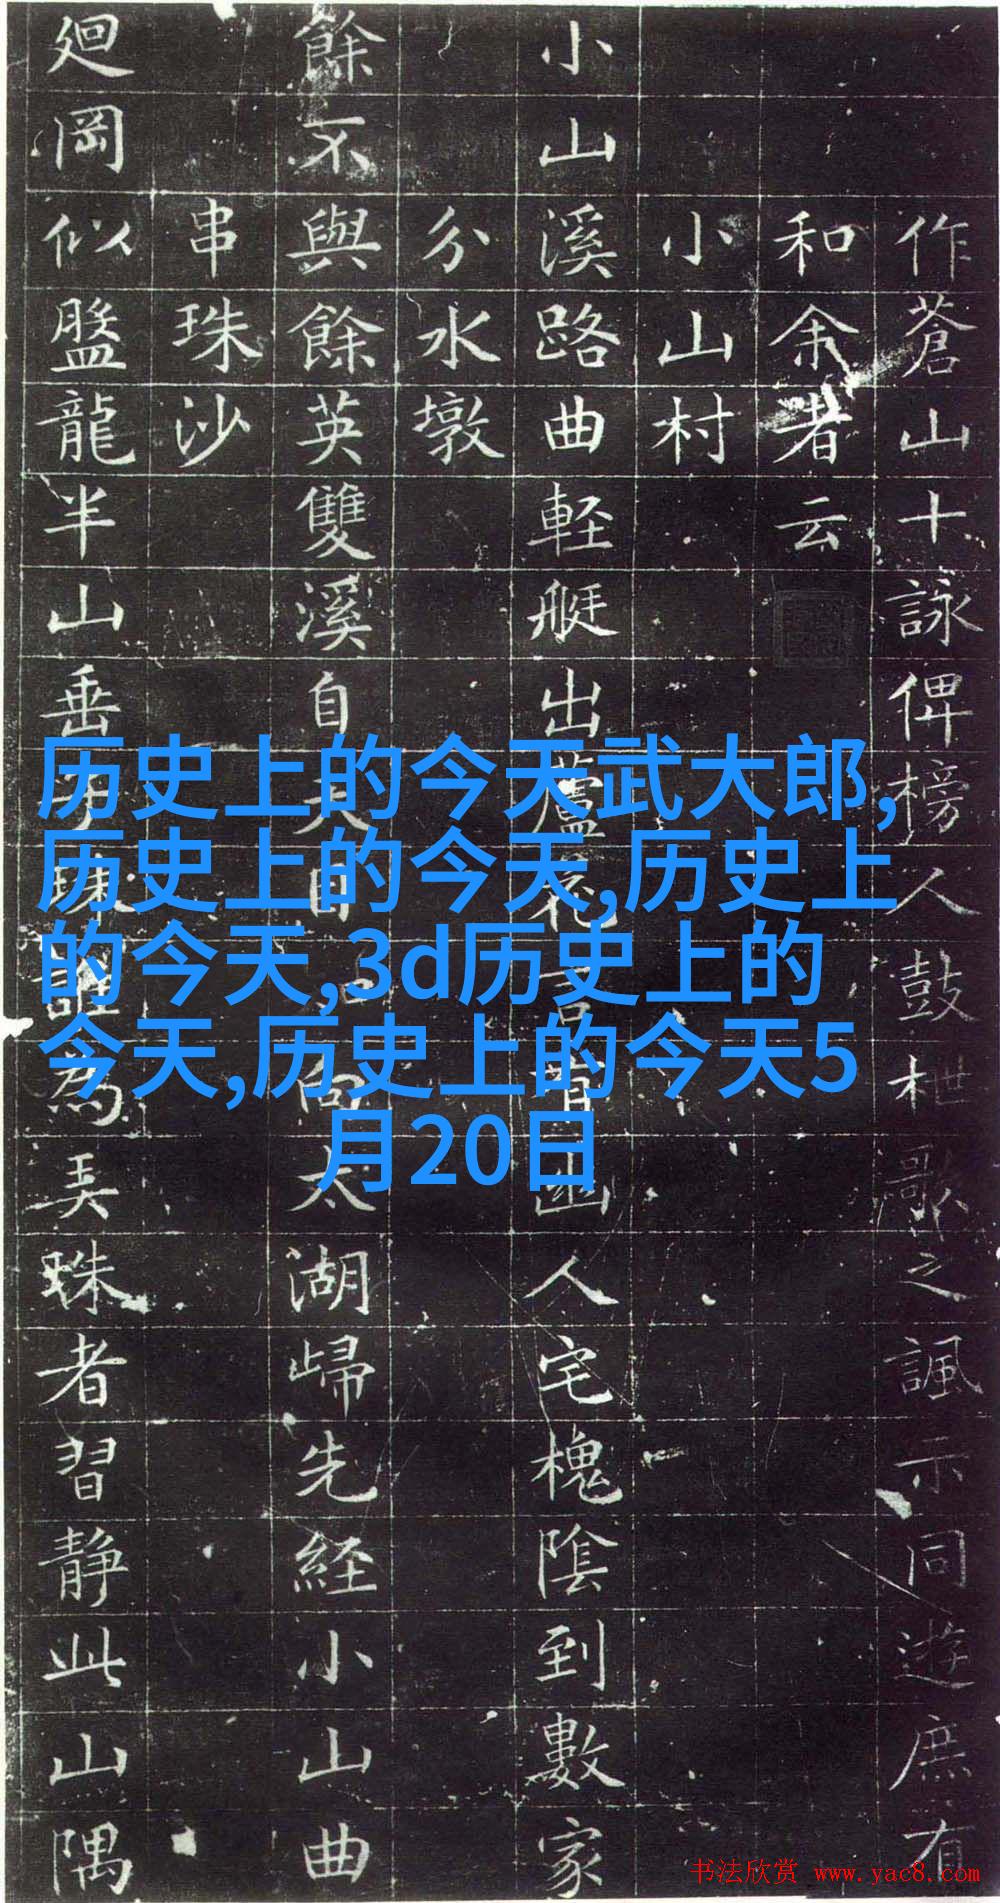 作蒼山十詠俾榜人鼓枻歌之諷示同遊庶有
和余者云
小山村
小山溪路曲軽艇出蘆花言幽人宅槐陰到數家
分水墩
餘不與餘英雙溪自天目向太湖歸先経小山曲
串珠沙
廻岡似盤龍半山垂珠誰為弄珠者習靜此山隅
历史上的今天武大郎,
历史上的今天,历史上
的今天,3d历史上的
今天,历史上的今天5
月20日
书法欣赏 www.yac8.com